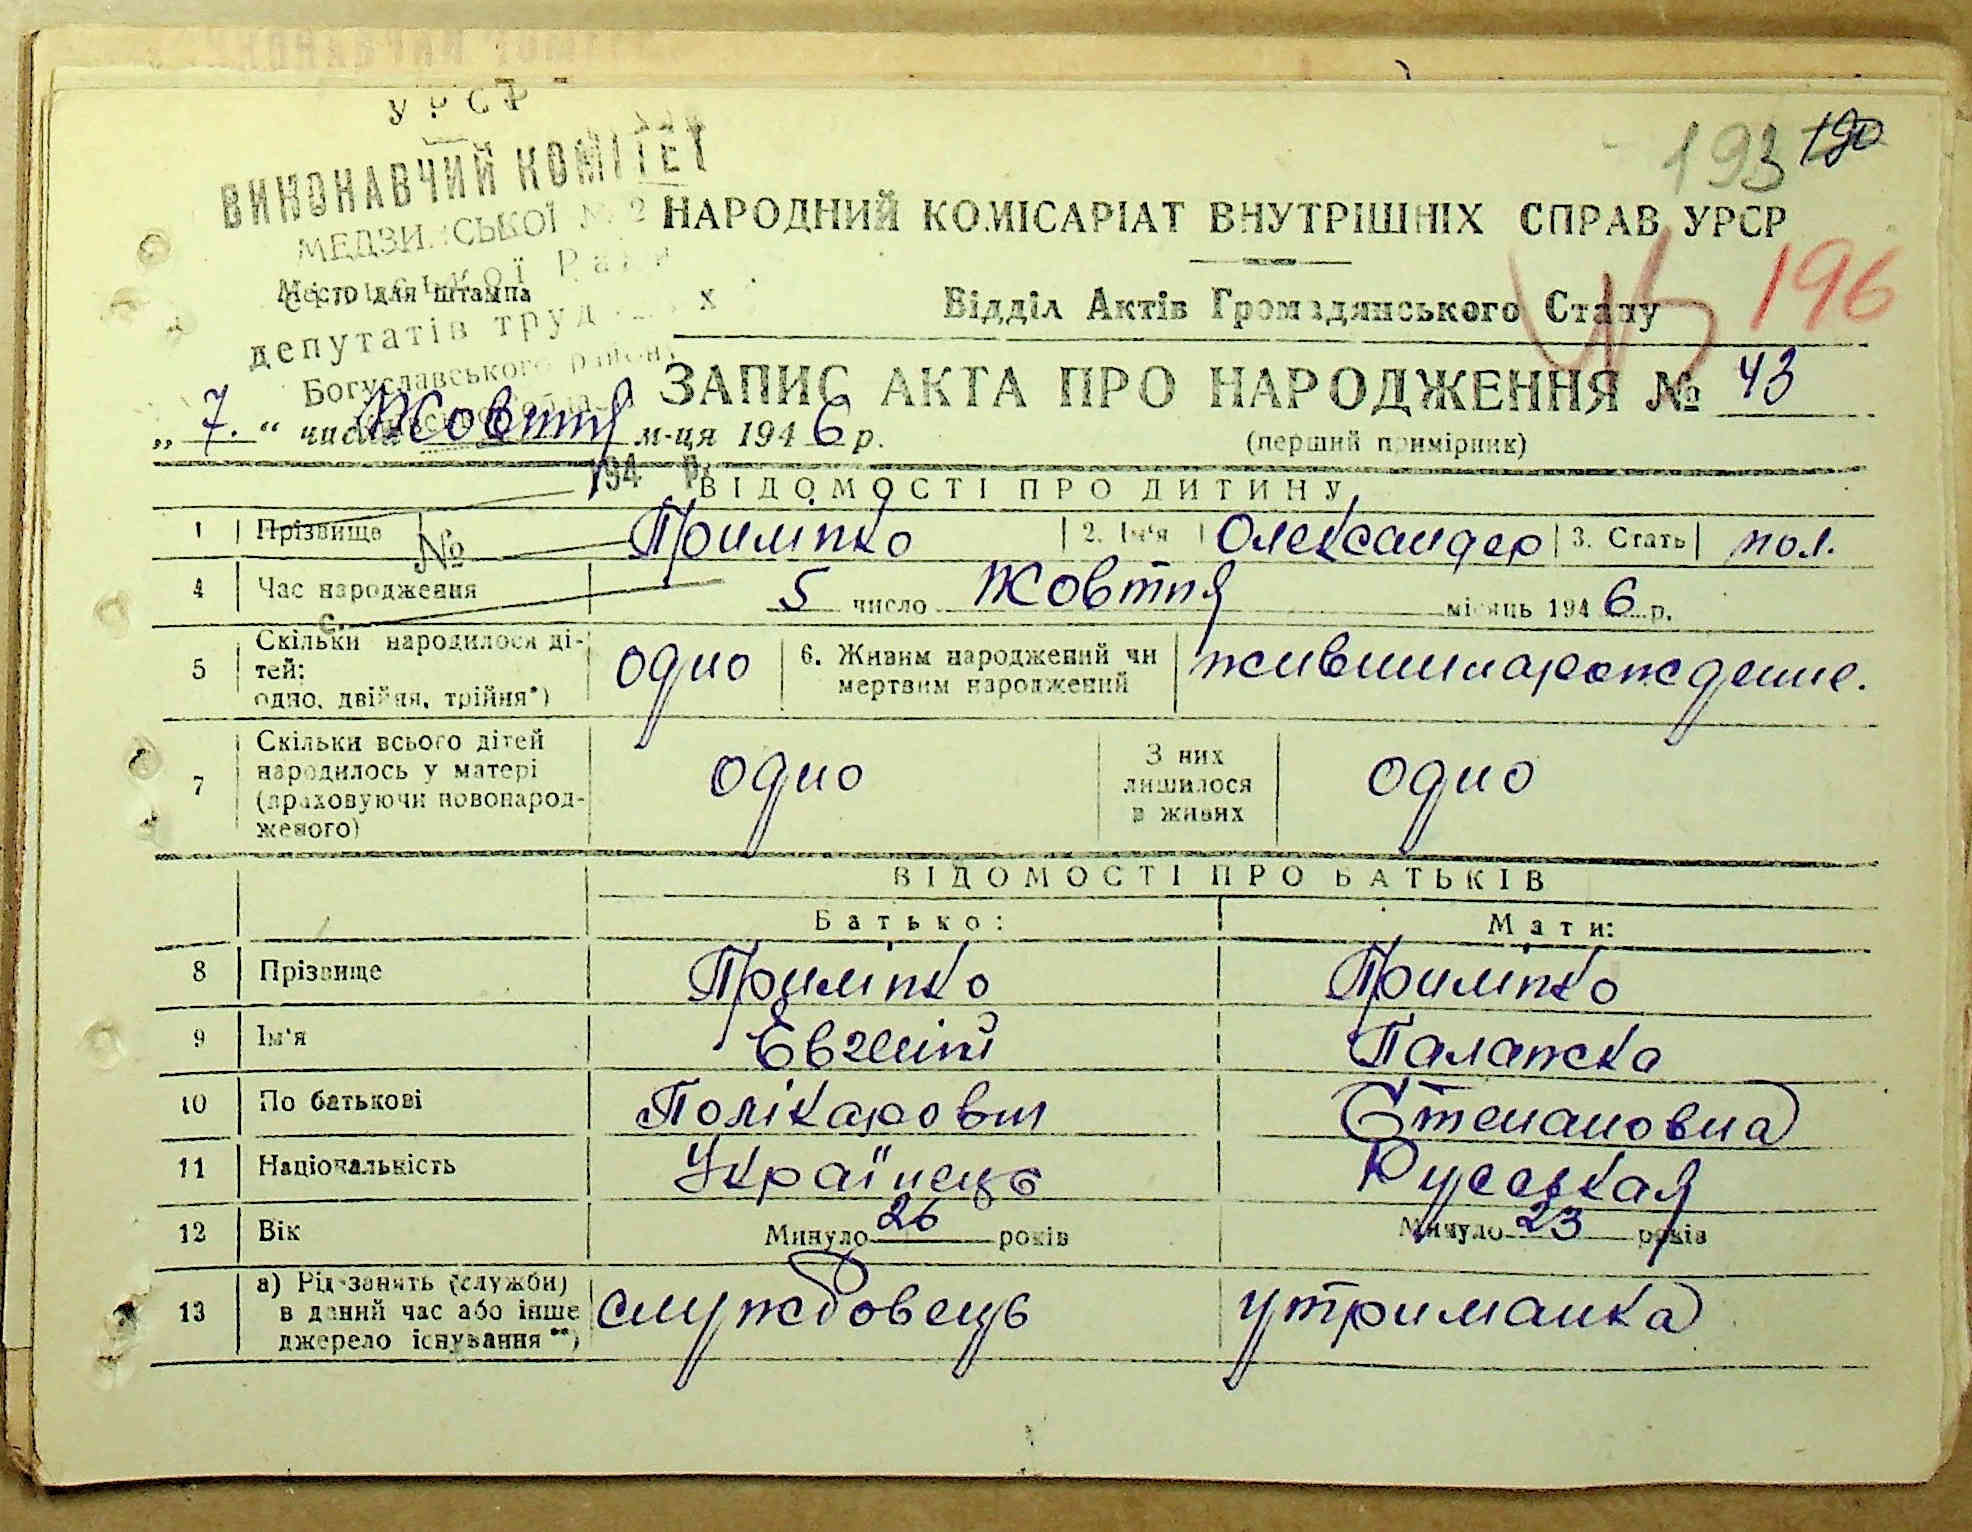 УРСР
ВИКОНАВЧИЙ КОМІТЕТ
193 190
№ 2
НАРОДНИЙ КОМІСАРІАТ ВНУТРІШНІХ СПРАВ УРСР
196
Место для штампа
Відділ Актів Громадянського Стану
депутатів
Богуславського району
ЗАПИС АКТА ПРО НАРОДЖЕННЯ № 43
„7.“ числа Жовтня м-ця 1946 р.
(перший примірник)
194 р.
ВІДОМОСТІ ПРО ДИТИНУ
1 Прізвище Приміпко 2. Ім'я Олександер 3. Стать пол.
№
4 Час народження 5 число Жовтня місяць 1946 р.
с.
5 Скільки народилося ді-
тей:
одно, двійня, трійня*) одно
6. Живим народжений чи
мертвим народжений
7 Скільки всього дітей
народилось у матері
(враховуючи новонарод-
женого) одно
З них
лишилося
в живих одно
ВІДОМОСТІ ПРО БАТЬКІВ
Батько: Мати:
8 Прізвище Приміпко Приміпко
9 Ім'я Евгеній Палажка
10 По батькові Полікарович Степановна
11 Національність Українець Русська
12 Вік Минуло 26 років Минуло 23 років
13 а) Рід занять (служби)
в даний час або інше
джерело існування**) службовець утриманка